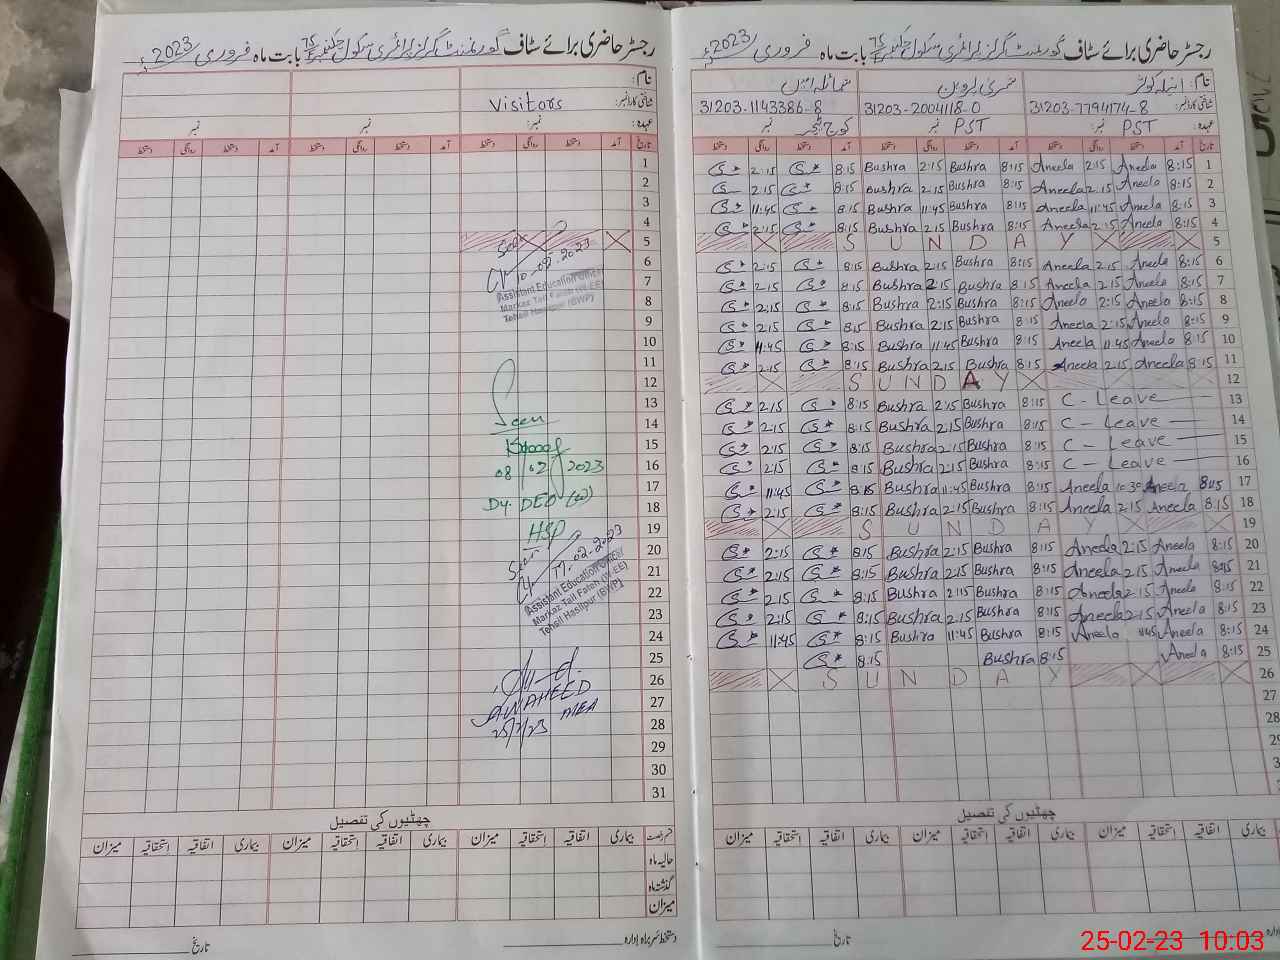 رجسٹر حاضری برائے سٹاف گورنمنٹ گرلز پرائمری سکول بابت ماہ فروری 2023ء
نام:
شناختی کارڈ نمبر: Visitors
عہدہ: نمبر: نمبر نمبر
تاریخ آمد دستخط روانگی دستخط آمد دستخط روانگی دستخط آمد دستخط روانگی دستخط
1
2
3
4
5
6
7
8
9
10
11
12
13
14
15
16
17
18
19
20
21
22
23
24
25
26
27
28
29
30
31
Seen
10-02-2023
Assistant Education Officer
Markaz Tail Fateh (W-EE)
Tehsil Hasilpur (BWP)
Seen
08/02/2023
Dy. DEO (W)
HSP
Seen
17-02-2023
Assistant Education Officer
Markaz Tail Fateh (W-EE)
Tehsil Hasilpur (BWP)
A WAHEED
MEA
25/2/23
چھٹیوں کی تفصیل
قسم رخصت بیماری اتفاقیہ استحقاقیہ میزان بیماری اتفاقیہ استحقاقیہ میزان بیماری اتفاقیہ استحقاقیہ میزان
حالیہ ماہ
گذشتہ ماہ
میزان
دستخط سربراہ ادارہ تاریخ
رجسٹر حاضری برائے سٹاف گورنمنٹ گرلز پرائمری سکول بابت ماہ فروری 2023ء
نام: انیلہ کوثر بشری پروین شمائلہ امین
شناختی کارڈ نمبر: 31203-7794174-8 31203-2004118-0 31203-1143386-8
عہدہ: PST نمبر: PST نمبر نمبر
تاریخ آمد دستخط روانگی دستخط آمد دستخط روانگی دستخط آمد دستخط روانگی دستخط
1 8:15 Aneela 2:15 Aneela 8:15 Bushra 2:15 Bushra 8:15 2:15
2 8:15 Aneela 2:15 Aneela 8:15 Bushra 2:15 Bushra 8:15 2:15
3 8:15 Aneela 11:45 Aneela 8:15 Bushra 11:45 Bushra 8:15 11:45
4 8:15 Aneela 2:15 Aneela 8:15 Bushra 2:15 Bushra 8:15 2:15
5 SUNDAY
6 8:15 Aneela 2:15 Aneela 8:15 Bushra 2:15 Bushra 8:15 2:15
7 8:15 Aneela 2:15 Aneela 8:15 Bushra 2:15 Bushra 8:15 2:15
8 8:15 Aneela 2:15 Aneela 8:15 Bushra 2:15 Bushra 8:15 2:15
9 8:15 Aneela 2:15 Aneela 8:15 Bushra 2:15 Bushra 8:15 2:15
10 8:15 Aneela 11:45 Aneela 8:15 Bushra 11:45 Bushra 8:15 11:45
11 8:15 Aneela 2:15 Aneela 8:15 Bushra 2:15 Bushra 8:15 2:15
12 SUNDAY
13 C - Leave 8:15 Bushra 2:15 Bushra 8:15 2:15
14 C - Leave 8:15 Bushra 2:15 Bushra 8:15 2:15
15 C - Leave 8:15 Bushra 2:15 Bushra 8:15 2:15
16 C - Leave 8:15 Bushra 2:15 Bushra 8:15 2:15
17 8:15 Aneela 10:30 Aneela 8:15 Bushra 11:45 Bushra 8:15 11:45
18 8:15 Aneela 2:15 Aneela 8:15 Bushra 2:15 Bushra 8:15 2:15
19 SUNDAY
20 8:15 Aneela 2:15 Aneela 8:15 Bushra 2:15 Bushra 8:15 2:15
21 8:15 Aneela 2:15 Aneela 8:15 Bushra 2:15 Bushra 8:15 2:15
22 8:15 Aneela 2:15 Aneela 8:15 Bushra 2:15 Bushra 8:15 2:15
23 8:15 Aneela 2:15 Aneela 8:15 Bushra 2:15 Bushra 8:15 2:15
24 8:15 Aneela 11:45 Aneela 8:15 Bushra 11:45 Bushra 8:15 11:45
25 8:15 Aneela 8:15 Bushra 8:15
26 SUNDAY
27
28
چھٹیوں کی تفصیل
بیماری اتفاقیہ استحقاقیہ میزان بیماری اتفاقیہ استحقاقیہ میزان بیماری اتفاقیہ استحقاقیہ میزان
تاریخ
25-02-23 10:03